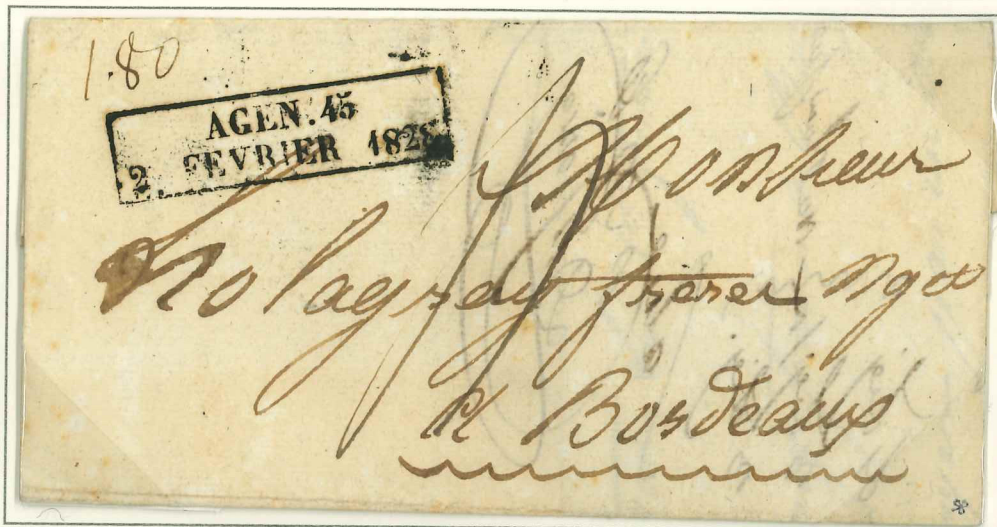 1.80
AGEN. 45
2 FEVRIER 1828
Monsieur
frères Ngt
à Bordeaux